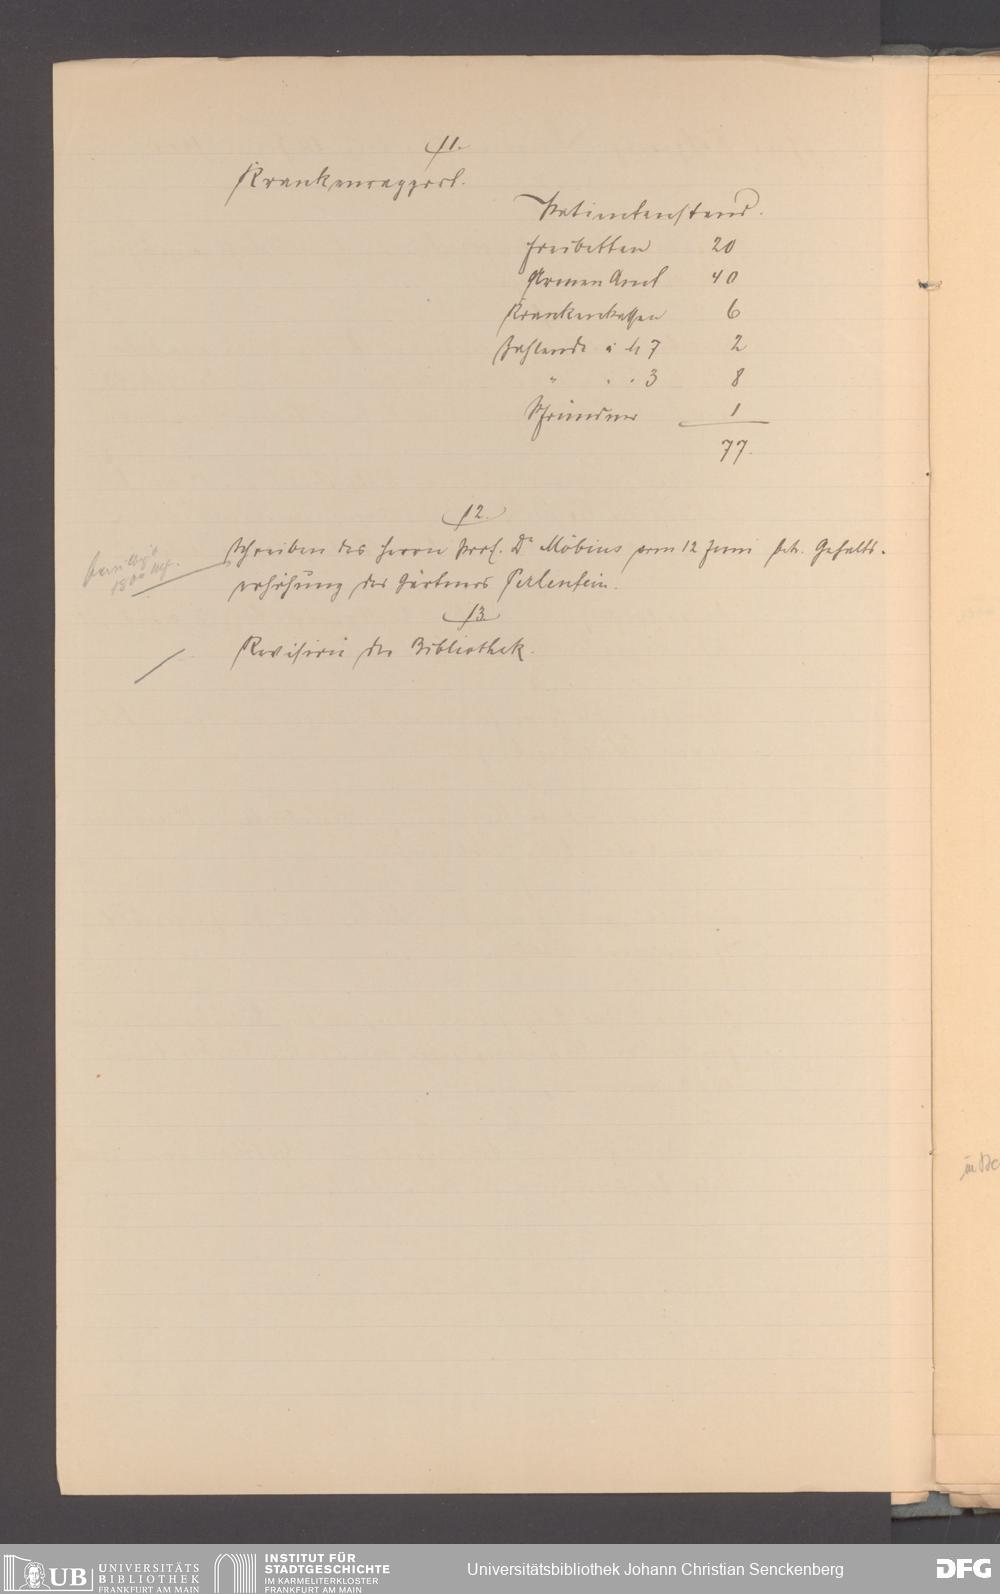 11.
Krankenrapport.
Patientenstand.
Freibetten 20
Armen Amt 40
Krankenkassen 6
Zahlende à M 7 2
" " " 3 8
Pfründner 1
77.
12.
Schreiben des Herrn Prof. Dr Möbius vom 12 Juni betr. Gehalts-
erhöhung des Gärtners Perlenfein.
1800 M.
13.
Revision der Bibliothek.
in
UB UNIVERSITÄTS
BIBLIOTHEK
FRANKFURT AM MAIN
INSTITUT FÜR
STADTGESCHICHTE
IM KARMELITERKLOSTER
FRANKFURT AM MAIN
Universitätsbibliothek Johann Christian Senckenberg
DFG